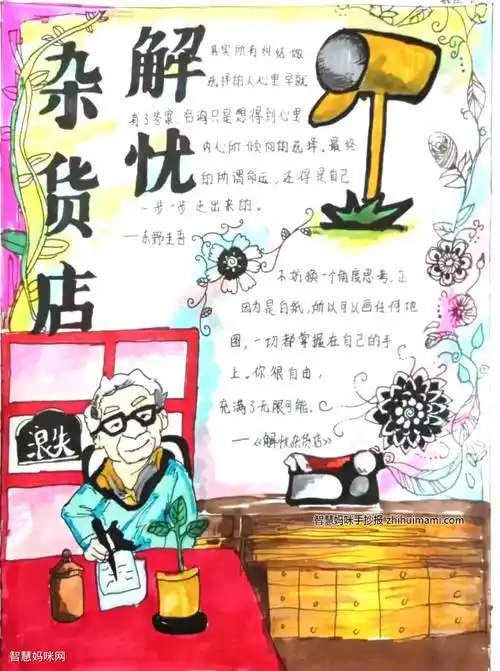 解忧
杂货店
其实所有纠结做
选择的人心里早就
有了答案 咨询只是想得到心里
内心所倾向的选择。最终
的所谓命运，还得是自己
一步一步走出来的。
——东野圭吾
不妨换一个角度思考，正
因为是白纸，所以可以画任何地
图，一切都掌握在自己的手
上。你很自由，
充满了无限可能。
——《解忧杂货店》
浪矢
智慧妈咪手抄报 zhihuimami.com
智慧妈咪网